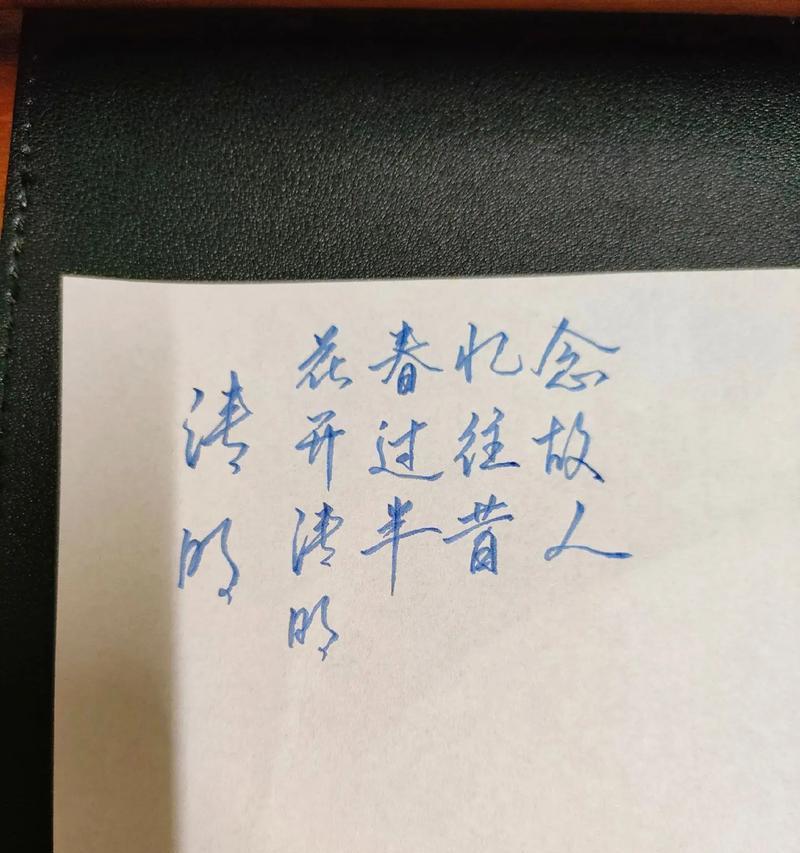 念故人
忆往昔
春过半
花开清明
清明